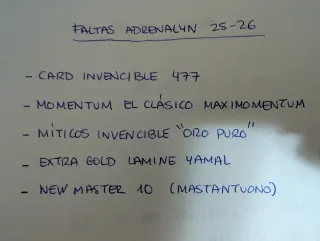 FALTAS ADRENALYN 25-26
- CARD INVENCIBLE 477
- MOMENTUM EL CLÁSICO MAXIMOMENTUM
- MÍTICOS INVENCIBLE "ORO PURO"
- EXTRA GOLD LAMINE YAMAL
- NEW MASTER 10 (MASTANTUONO)